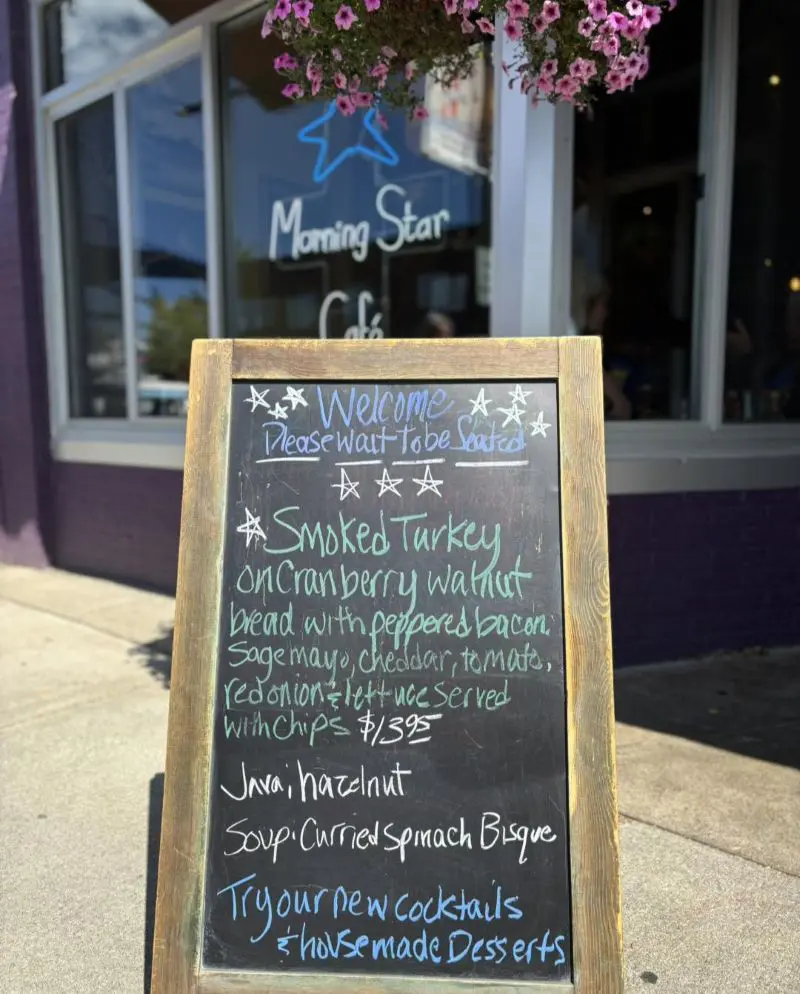 Morning Star
Café
Welcome
Please wait to be Seated
Smoked Turkey
on Cranberry walnut
bread with peppered bacon.
Sage mayo, cheddar, tomato,
red onion & lettuce served
with chips $13.95
Java: hazelnut
Soup: Curried spinach Bisque
Try our new cocktails
& housemade Desserts